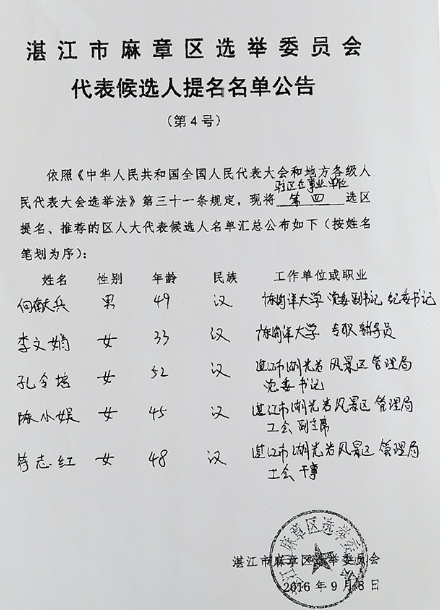 湛江市麻章区选举委员会
代表候选人提名名单公告
(第4号)
依照《中华人民共和国全国人民代表大会和地方各级人
驻区企事业单位
民代表大会选举法》第三十一条规定，现将 第四 选区
提名、推荐的区人大代表候选人名单汇总公布如下（按姓名
笔划为序）：
姓名 性别 年龄 民族 工作单位或职业
何献兵 男 49 汉 广东海洋大学 党委副书记 纪委书记
李文娟 女 33 汉 广东海洋大学 专职辅导员
孔令 女 52 汉 湛江市湖光岩风景区管理局
党委书记
陈小娱 女 45 汉 湛江市湖光岩风景区管理局
工会副主席
符志红 女 48 汉 湛江市湖光岩风景区管理局
工会干事
湛江市麻章区选举委员会
湛江市麻章区选举委员会
2016年9月8日